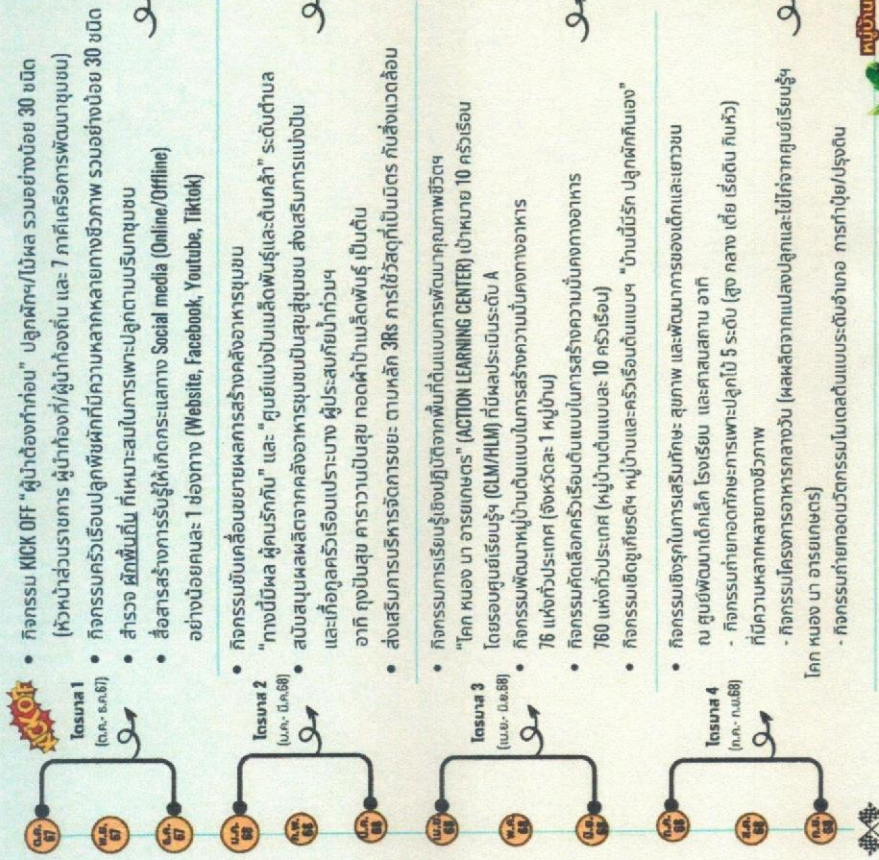 KICK OFF
ต.ค. 67
พ.ย. 67
ธ.ค. 67
ไตรมาส 1
(ต.ค.- ธ.ค.67)
• กิจกรรม KICK OFF "ผู้นำต้องทำก่อน" ปลูกผักฯ/ไม้ผล รวมอย่างน้อย 30 ชนิด
(หัวหน้าส่วนราชการ ผู้นำท้องที่/ผู้นำท้องถิ่น และ 7 ภาคีเครือการพัฒนาชุมชน)
• กิจกรรมครัวเรือนปลูกพืชผักที่มีความหลากหลายทางชีวภาพ รวมอย่างน้อย 30 ชนิด
• สำรวจ ผักพื้นถิ่น ที่เหมาะสมในการเพาะปลูกตามบริบทชุมชน
• สื่อสารสร้างการรับรู้ให้เกิดกระแสทาง Social media (Online/Offline)
อย่างน้อยคนละ 1 ช่องทาง (Website, Facebook, Youtube, Tiktok)
ม.ค. 68
ก.พ. 68
มี.ค. 68
ไตรมาส 2
(ม.ค.- มี.ค.68)
• กิจกรรมขับเคลื่อนขยายผลการสร้างคลังอาหารชุมชน
"ทางนี้มีผล ผู้คนรักกัน" และ "ศูนย์แบ่งปันเมล็ดพันธุ์และต้นกล้า" ระดับตำบล
• สนับสนุนผลผลิตจากคลังอาหารชุมชนปันสุขสู่ชุมชน ส่งเสริมการแบ่งปัน
และเกื้อกูลครัวเรือนเปราะบาง ผู้ประสบภัยน้ำท่วมฯ
อาทิ ถุงปันสุข คาราวานปันสุข ทอดผ้าป่าเมล็ดพันธุ์ เป็นต้น
• ส่งเสริมการบริหารจัดการขยะ ตามหลัก 3Rs การใช้วัสดุที่เป็นมิตร กับสิ่งแวดล้อม
เม.ย. 68
พ.ค. 68
มิ.ย. 68
ไตรมาส 3
(เม.ย.- มิ.ย.68)
• กิจกรรมการเรียนรู้เชิงปฏิบัติจากพื้นที่ต้นแบบการพัฒนาคุณภาพชีวิตฯ
"โคก หนอง นา อารยเกษตร" (ACTION LEARNING CENTER) เป้าหมาย 10 ครัวเรือน
โดยรอบศูนย์เรียนรู้ฯ (CLM/HLM) ที่มีผลประเมินระดับ A
• กิจกรรมพัฒนาหมู่บ้านต้นแบบในการสร้างความมั่นคงทางอาหาร
76 แห่งทั่วประเทศ (จังหวัดละ 1 หมู่บ้าน)
• กิจกรรมคัดเลือกครัวเรือนต้นแบบในการสร้างความมั่นคงทางอาหาร
760 แห่งทั่วประเทศ (หมู่บ้านต้นแบบละ 10 ครัวเรือน)
• กิจกรรมเชิดชูเกียรติฯ หมู่บ้านและครัวเรือนต้นแบบฯ "บ้านนี้มีรัก ปลูกผักกินเอง"
ก.ค. 68
ส.ค. 68
ก.ย. 68
ไตรมาส 4
(ก.ค.- ก.ย.68)
• กิจกรรมเชิงรุกในการเสริมทักษะ สุขภาพ และพัฒนาการของเด็กและเยาวชน
ณ ศูนย์พัฒนาเด็กเล็ก โรงเรียน และศาสนสถาน อาทิ
- กิจกรรมถ่ายทอดทักษะการเพาะปลูกไม้ 5 ระดับ (สูง กลาง เตี้ย เรี่ยดิน กินหัว)
ที่มีความหลากหลายทางชีวภาพ
- กิจกรรมโครงการอาหารกลางวัน (ผลผลิตจากแปลงปลูกและไข่ไก่จากศูนย์เรียนรู้ฯ
โคก หนอง นา อารยเกษตร)
- กิจกรรมถ่ายทอดนวัตกรรมโมเดลต้นแบบระดับอำเภอ การทำปุ๋ย/ปรุงดิน
หมู่บ้าน